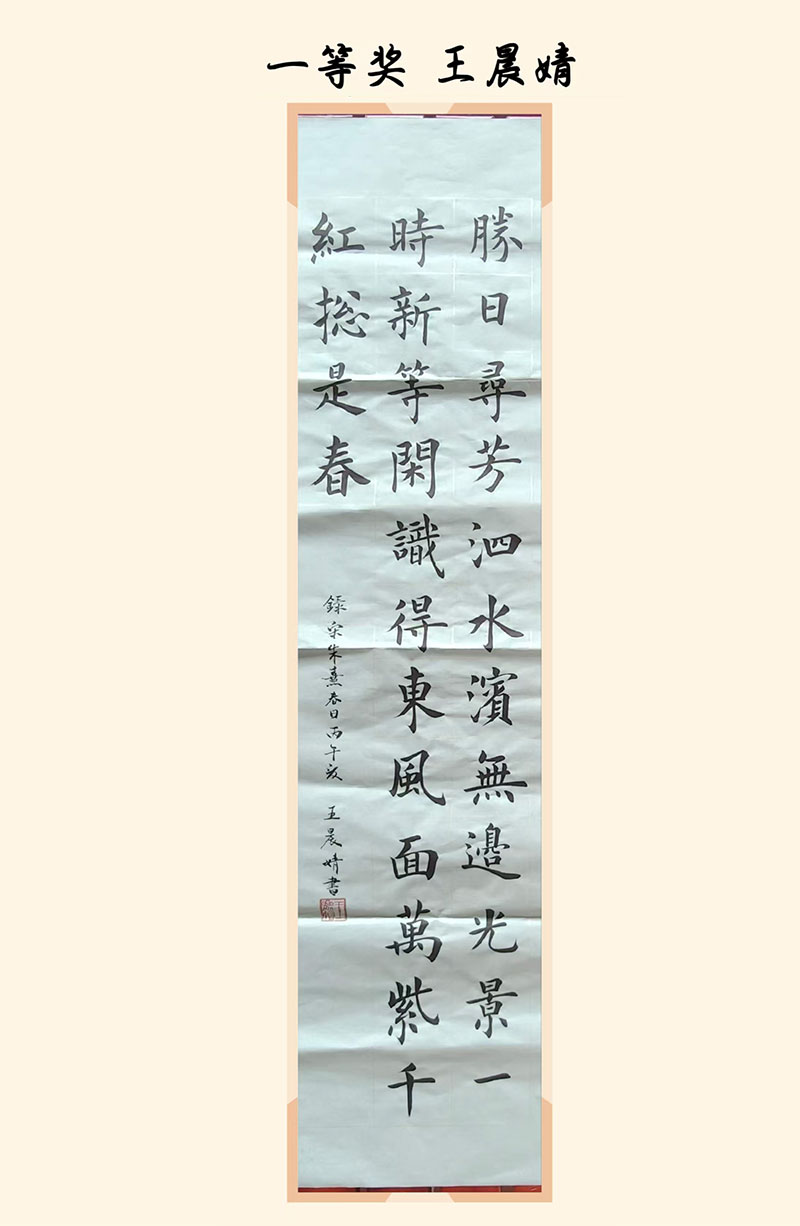 一等奖 王晨婧
勝日尋芳泗水濱無邊光景一
時新等閑識得東風面萬紫千
紅搃是春
錄宋朱熹春日丙午歲 王晨婧書